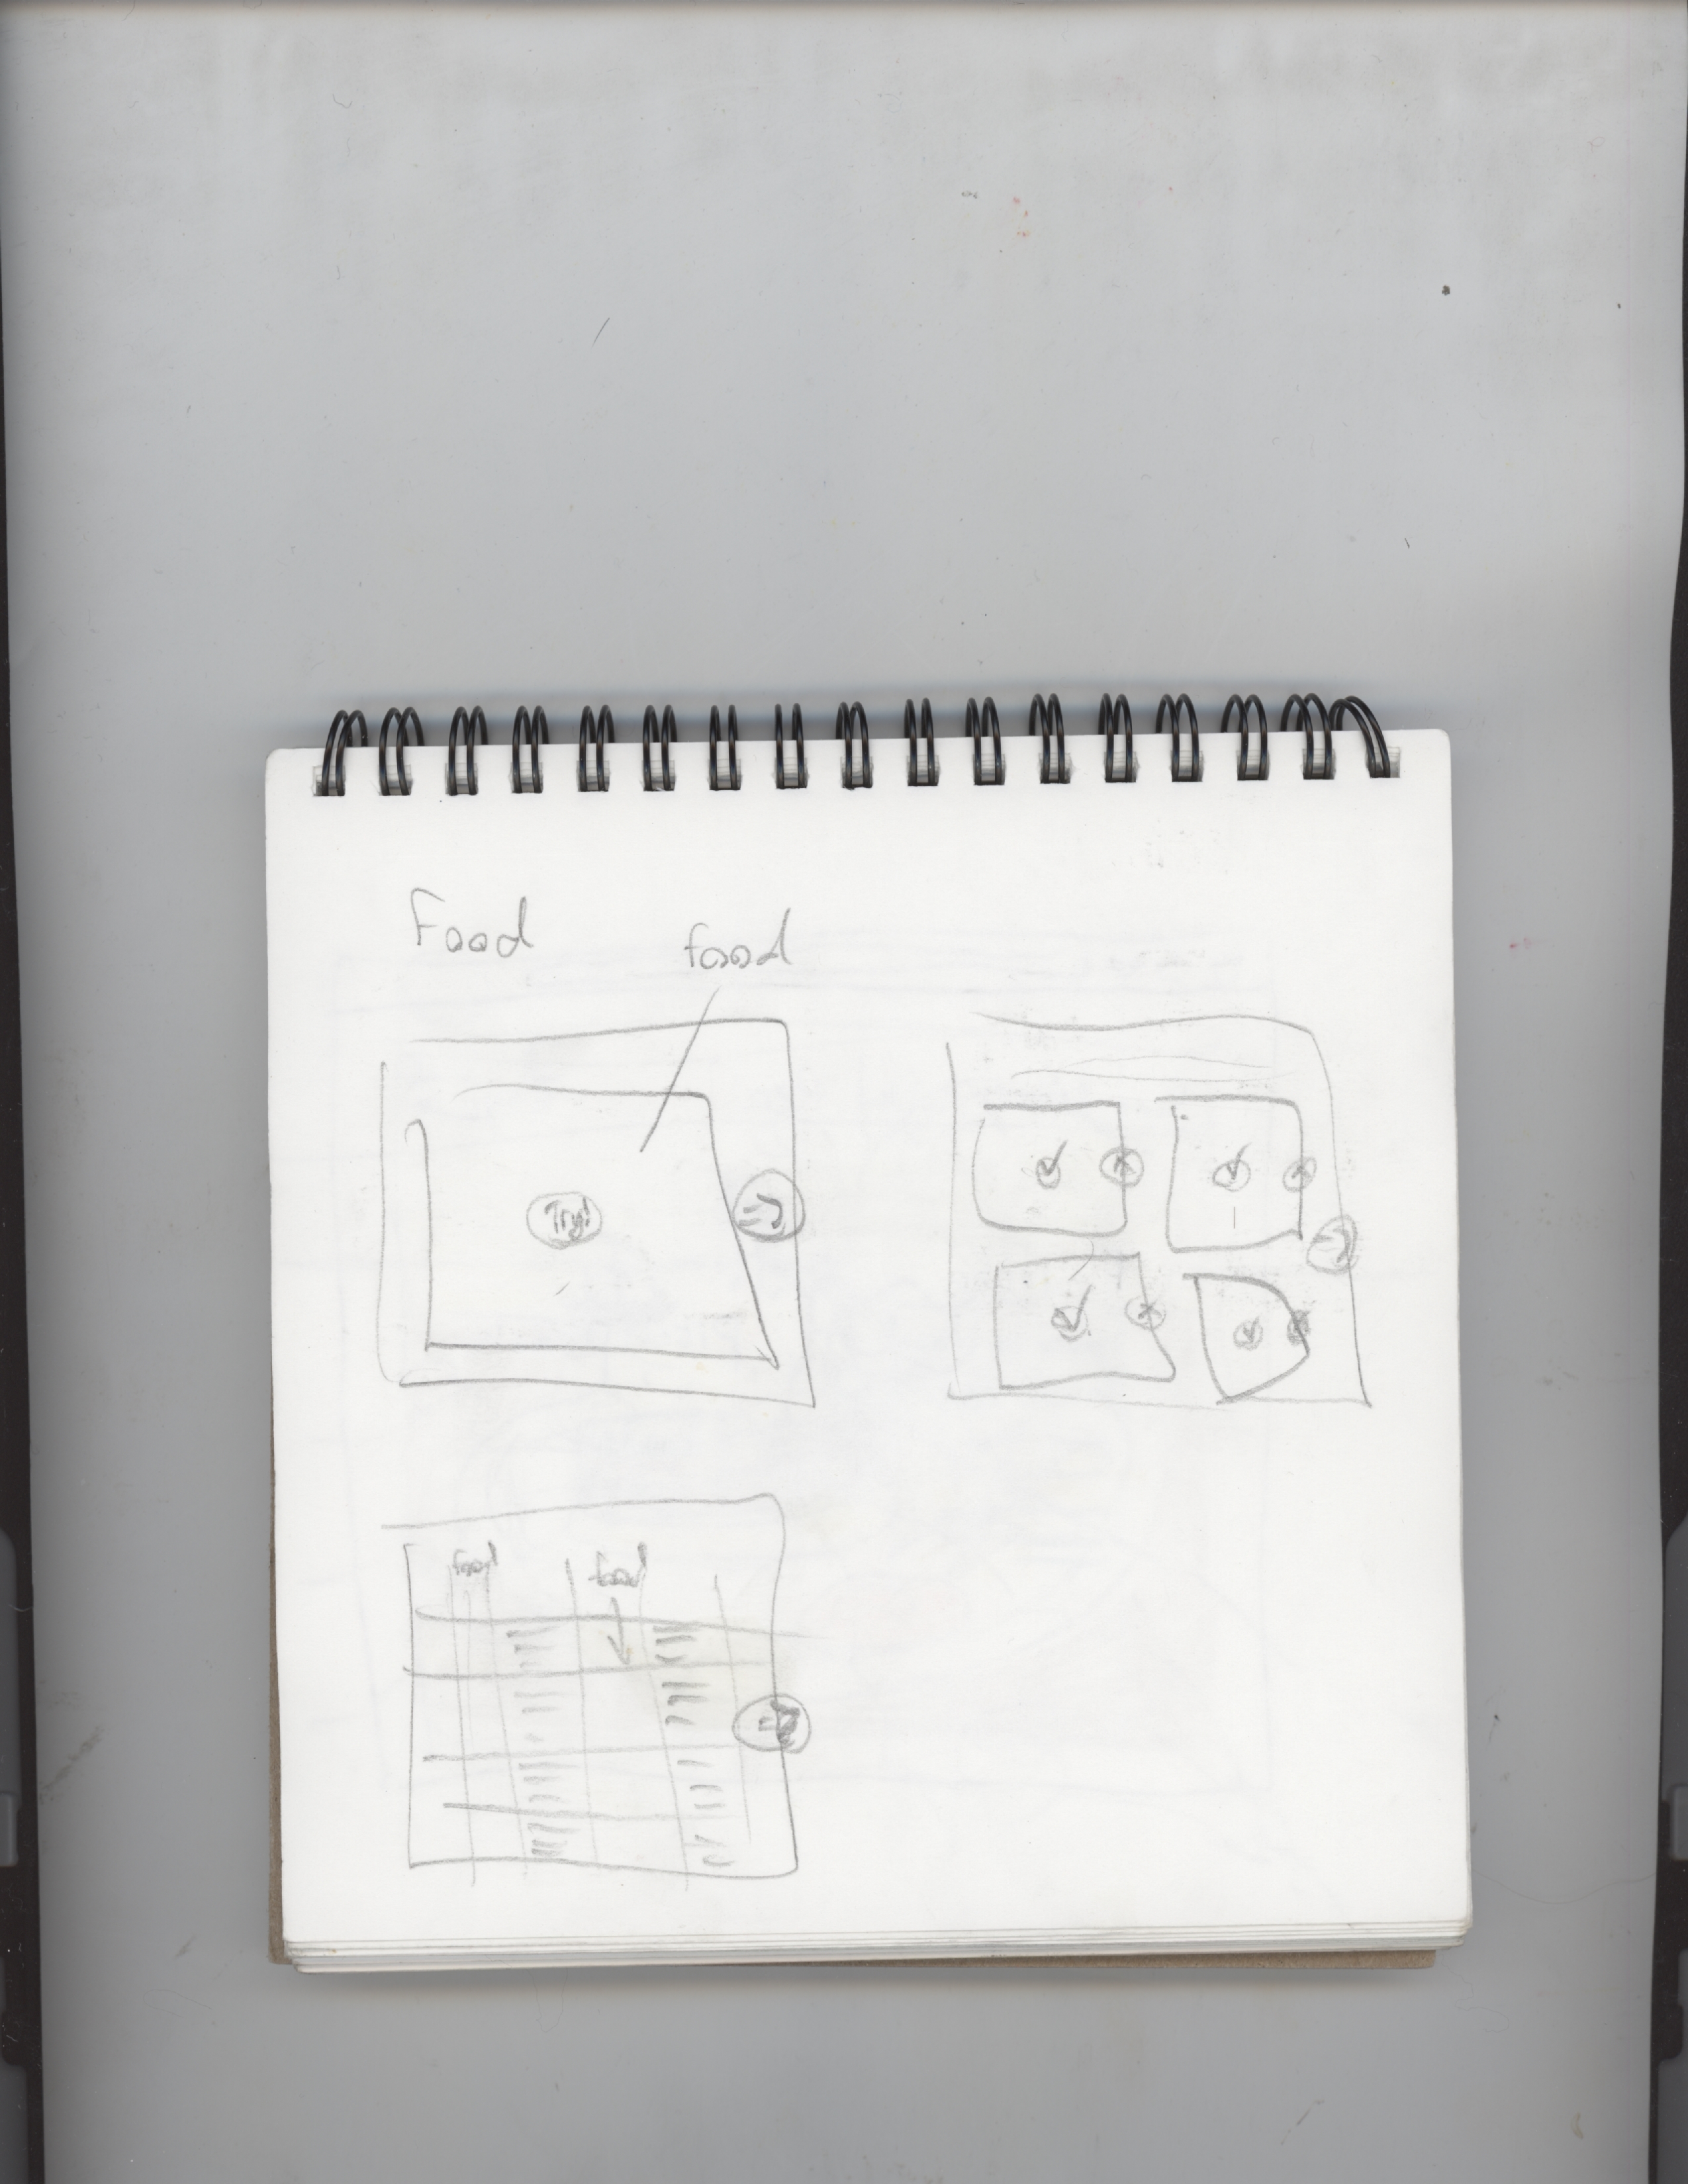 Food
food
Try!
food
food